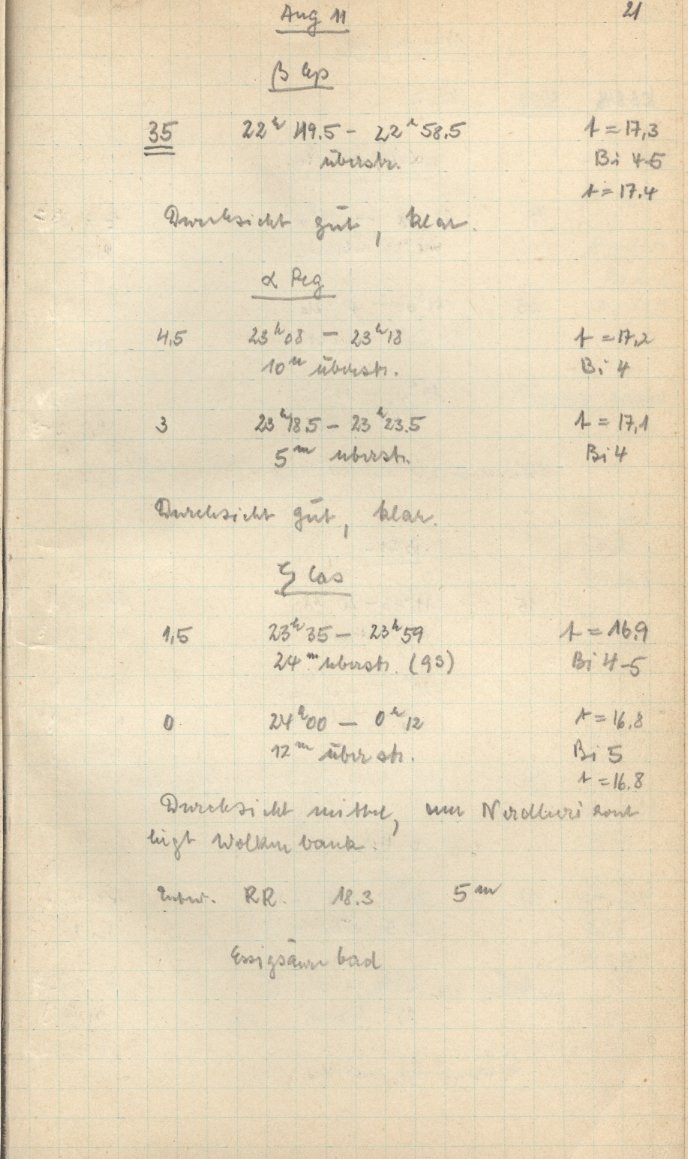 Aug 11 21
β Cep
35 22ʰ 49.5 – 22ʰ 58.5 t = 17,3
überstr. Bi 4-5
t = 17.4
Durchsicht gut, klar.
α Peg
4,5 23ʰ08 – 23ʰ18 t = 17,2
10ᵐ überstr. Bi 4
3 23ʰ18.5 – 23ʰ23.5 t = 17,1
5ᵐ überstr. Bi 4
Durchsicht gut, klar.
Cas
1,5 23ʰ35 – 23ʰ59 t = 16.9
24ᵐ überstr. Bi 4-5
0 24ʰ00 – 0ʰ12 t = 16.8
12ᵐ überstr. Bi 5
t = 16.8
Durchsicht mittel, Nordhorizont
liegt Wolkenbank.
Entw. RR. 18.3 5ᵐ
Essigsäure bad